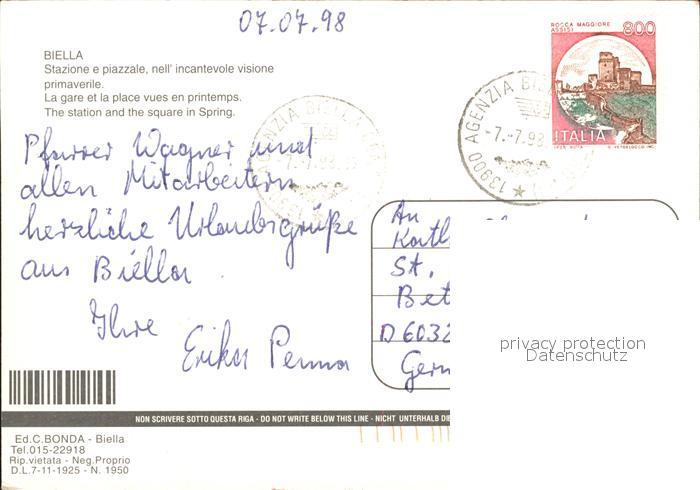 07.07.98
BIELLA
Stazione e piazzale, nell' incantevole visione
primaverile.
La gare et la place vues en printemps.
The station and the square in Spring.
ROCCA MAGGIORE
ASSISI
800
ITALIA
13900 AGENZIA BIELLA
-7.-7.98
AGENZIA BIELLA
-7.-7.98
Pfarrer Wagner und
allen Mitarbeitern
herzliche Urlaubsgrüße
aus Biella.
Ihre
Erika Penna
An
Kath
St.
Bet
D 6032
Germ
privacy protection
Datenschutz
NON SCRIVERE SOTTO QUESTA RIGA - DO NOT WRITE BELOW THIS LINE - NICHT UNTERHALB DIE
Ed.C.BONDA - Biella
Tel.015-22918
Rip.vietata - Neg.Proprio
D.L.7-11-1925 - N. 1950